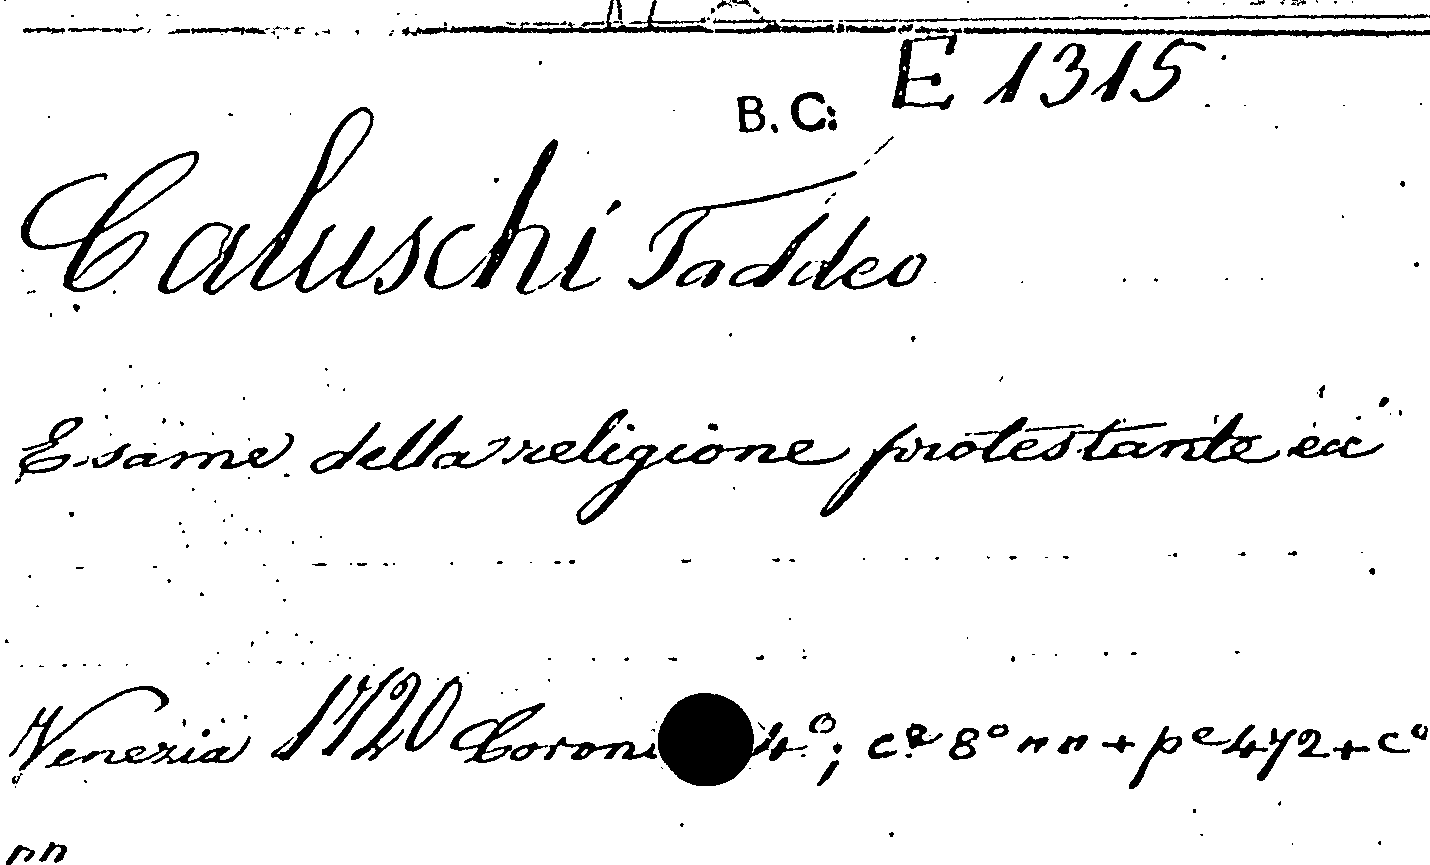 B. C. E 1315
Caluschi Taddeo
Esame della religione protestante
Venezia 1720 4°; 8° nn + 472 + c°
nn